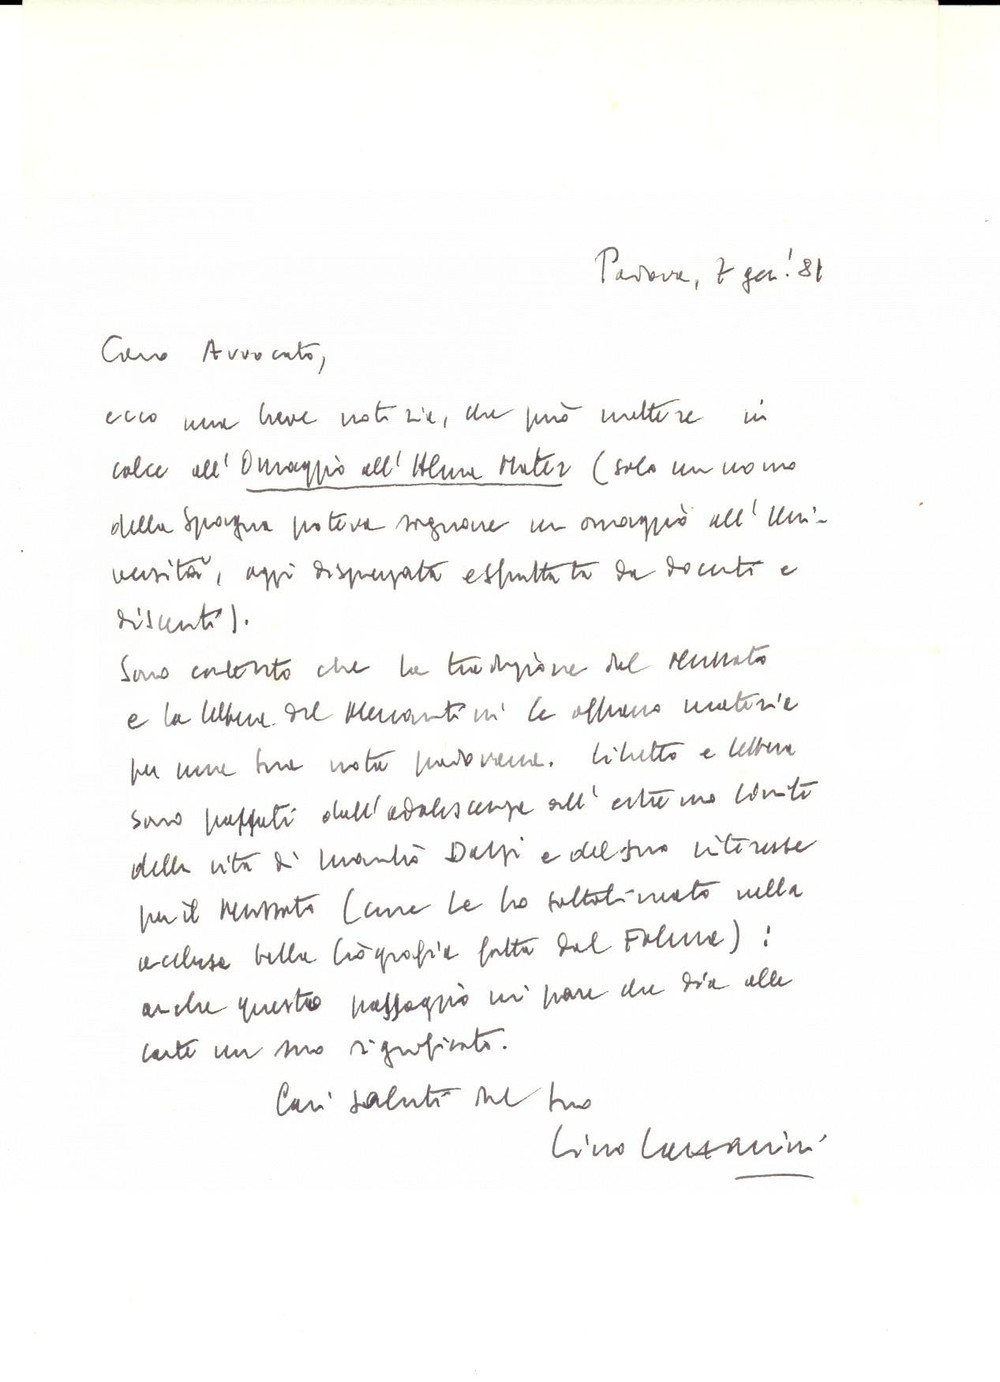 Padova, 7 gen.' 81
Caro Avvocato,
ecco una breve notizia, che può mettere in
calce all'Omaggio all'Alma Mater (solo un uomo
della Spagna poteva sognare un omaggio all'Uni-
versità, oggi disprezzata e sfruttata da docenti e
discenti).
Sono contento che la traduzione del Mussato
e la lettera del Mercantini le offrano materia
per una sua nota padovana. Libretto e lettera
sono passati dall'adolescenza all'estremo limite
della vita di Manlio Dazzi e del suo interesse
per il Mussato (come Le ho sottolineato nella
acclusa bella biografia fatta dal Folena):
anche questo passaggio mi pare che dia alle
carte un suo significato.
Cari saluti dal suo
Lino Lazzarini